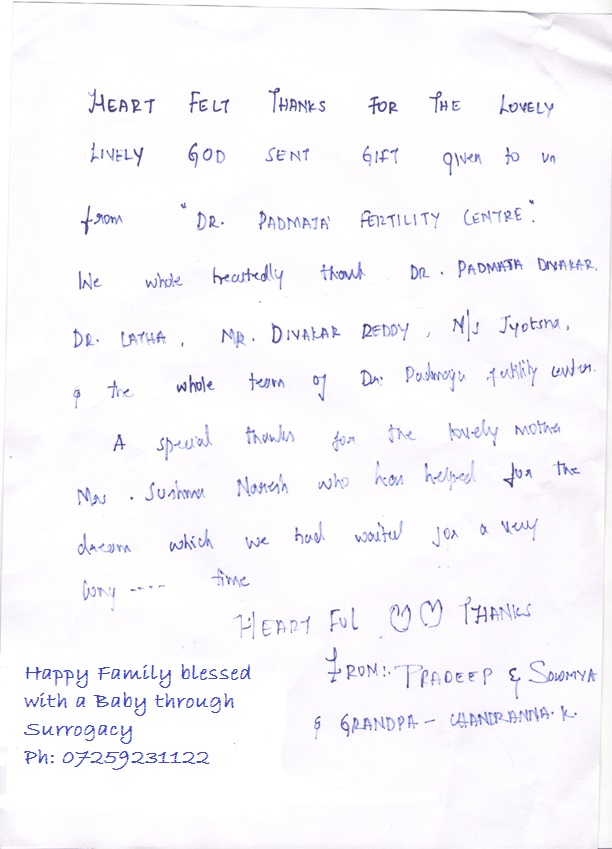 HEART FELT THANKS FOR THE LOVELY
LIVELY GOD SENT GIFT given to us
from "DR. PADMAJA FERTILITY CENTRE".
We whole heartedly thank DR. PADMAJA DIVAKAR,
DR. LATHA, MR. DIVAKAR REDDY, M/s Jyotsna,
& the whole team of Dr. Padmaja fertility center.
A special thanks for the lovely mother
Mrs. Sushma Naresh who has helped for the
dream which we had waited for a very
long ---- time
HEART FUL ♡♡ THANKS
FROM:- PRADEEP & SOWMYA
& GRANDPA - CHANDRANNA.K.
Happy Family blessed
with a Baby through
Surrogacy
Ph: 07259231122